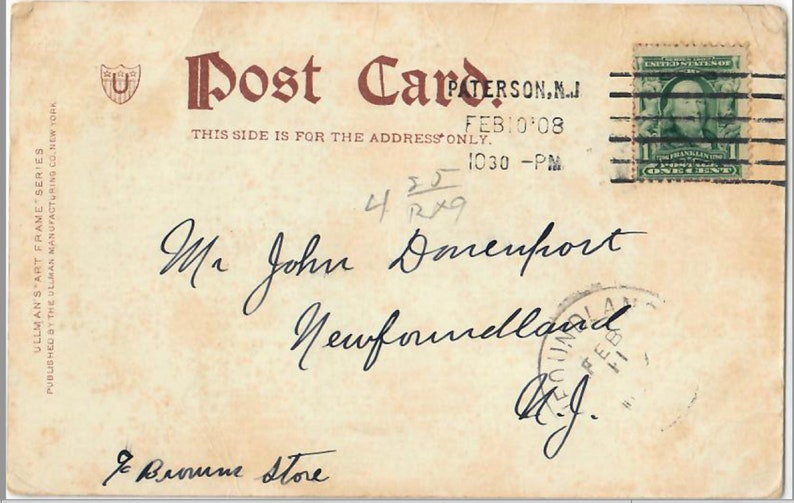 U
Post Card.
THIS SIDE IS FOR THE ADDRESS ONLY.
PATERSON, N.J
FEB 10 '08
10 30 - PM
SERIES 1902
UNITED STATES OF
FRANKLIN
POSTAGE
ONE CENT
4
Mr John Davenport
Newfoundland
N.J.
℅ Browns Store
FOUNDLAN
FEB
11
ULLMAN'S "ART FRAME" SERIES
PUBLISHED BY THE ULLMAN MANUFACTURING CO. NEW YORK